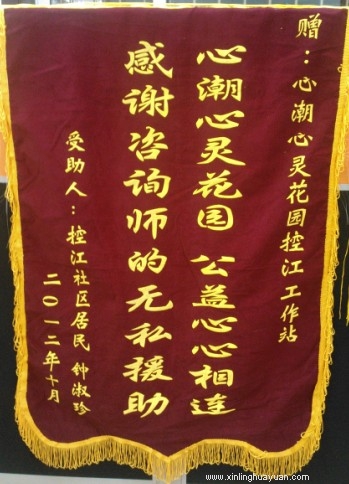 赠：心潮心灵花园控江工作站
心潮心灵花园 公益心心相连
感谢咨询师的无私援助
受助人：控江社区居民 钟淑珍
二〇一二年十月
www.xinlinghuayuan.com